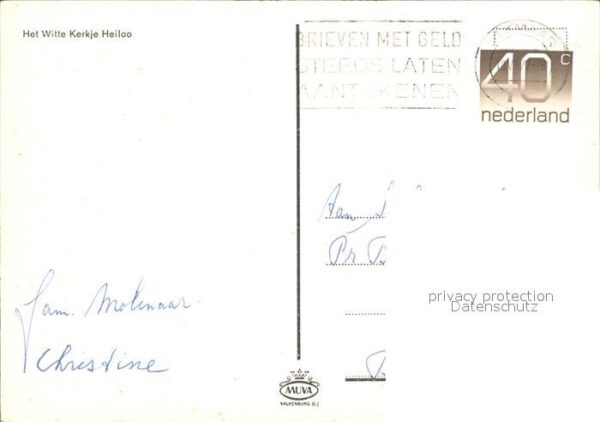 Het Witte Kerkje Heiloo
BRIEVEN MET GELD
STEEDS LATEN
AANTEKENEN
40c
nederland
Aan
Pr
privacy protection
Datenschutz
fam. Molenaar
Christine
MUVA
VALKENBURG (L.)